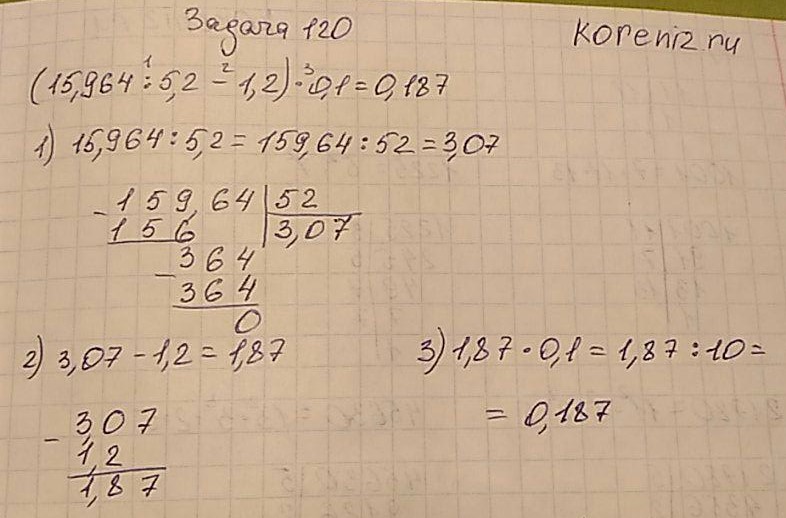 Задача 120
Koreniz.ru
(15,964 : 5,2 - 1,2) · 0,1 = 0,187
1 2 3
1) 15,964 : 5,2 = 159,64 : 52 = 3,07
- 159,64 | 52
156 | 3,07
- 364
364
0
2) 3,07 - 1,2 = 1,87
- 3,07
1,2
1,87
3) 1,87 · 0,1 = 1,87 : 10 =
= 0,187